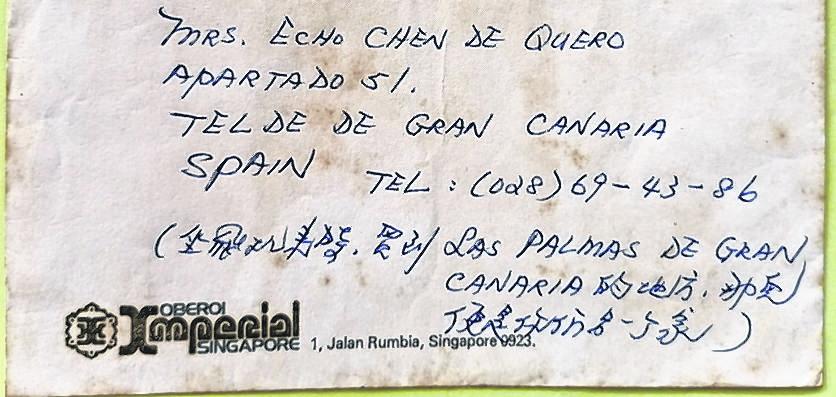 MRS. ECHO CHEN DE QUERO
APARTADO 51.
TELDE DE GRAN CANARIA
SPAIN TEL : (028) 69-43-86
(坐飛机 買到 LAS PALMAS DE GRAN
CANARIA 的地方,那兒
便是你们另一个家)
OBEROI
Imperial
SINGAPORE 1, Jalan Rumbia, Singapore 0923.